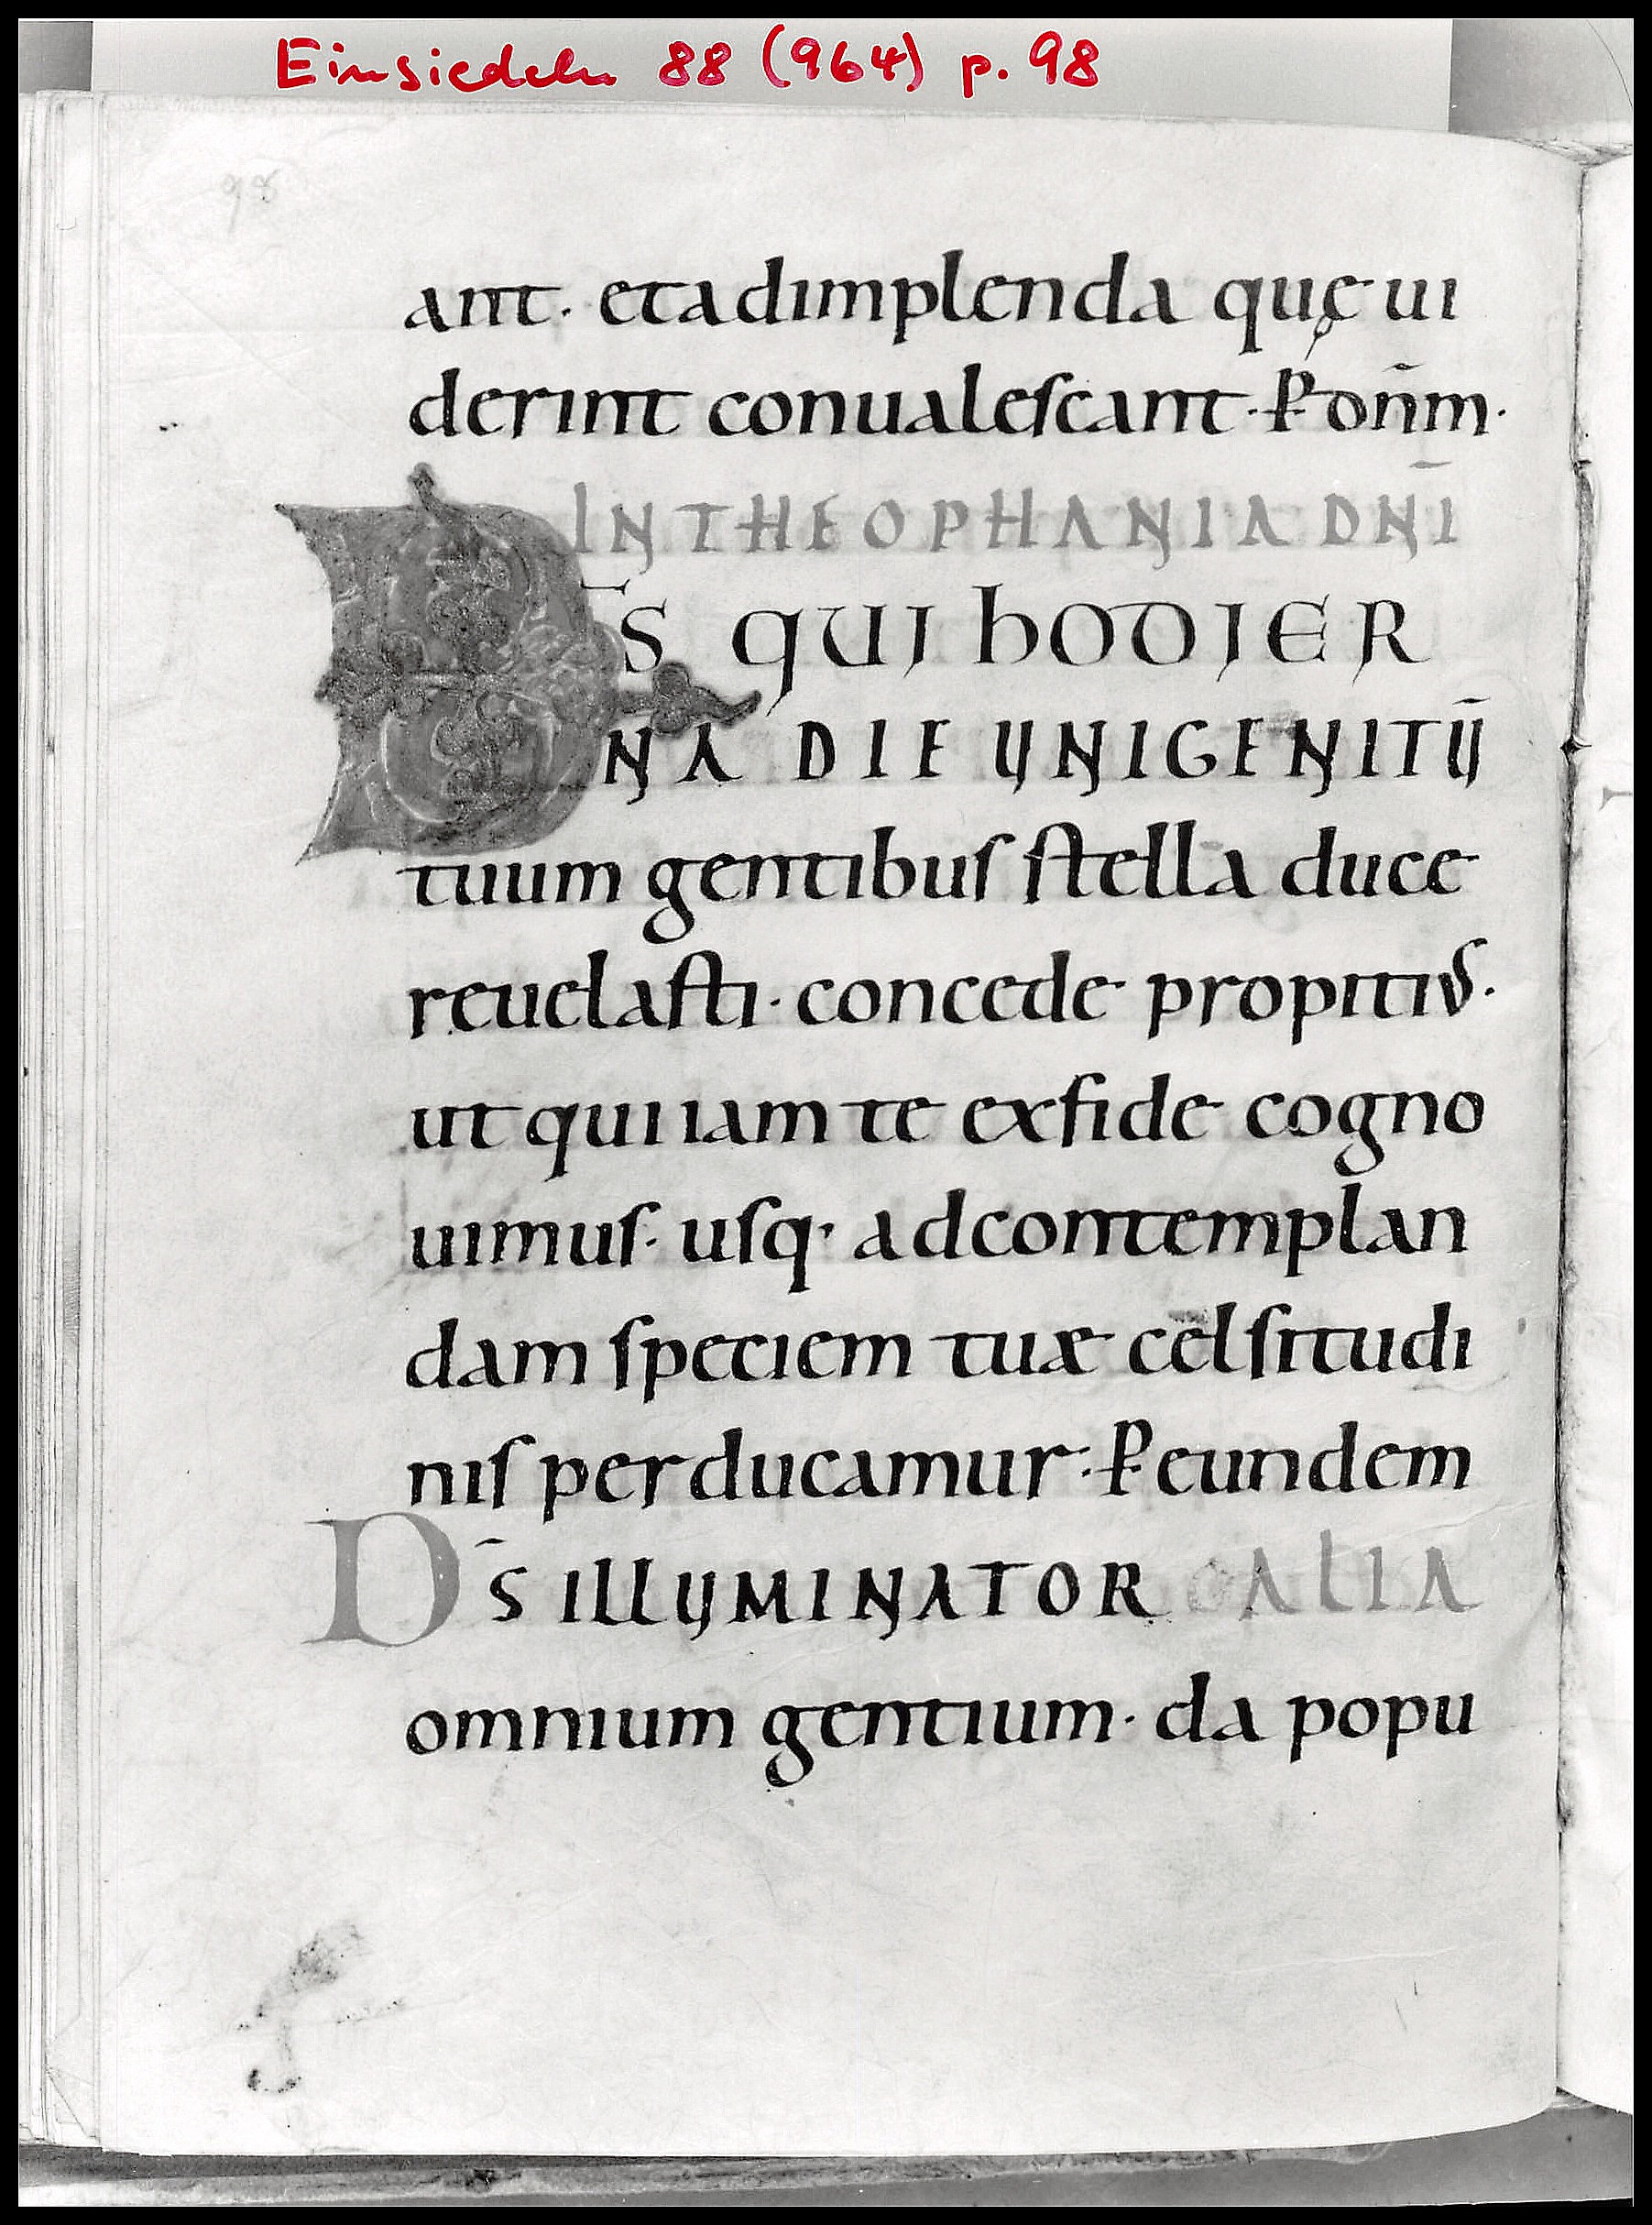 Einsiedeln 88 (964) p. 98
98
ant· et adimplenda quę ui
derint conualeſcant· P̲ dn̄m·
IN THEOPHANIA DN̄I
D̄S QUI HODIER
NA DIE UNIGENITŪ
tuum gentibuſ ſtella duce
reuelaſti· concede propitiuſ·
ut qui iam te exfide cogno
uimuſ· uſq· adcontemplan
dam ſpeciem tuæ celſitudi
niſ perducamur· P̲ eundem
D̄S ILLUMINATOR ALIA
omnium gentium· da popu